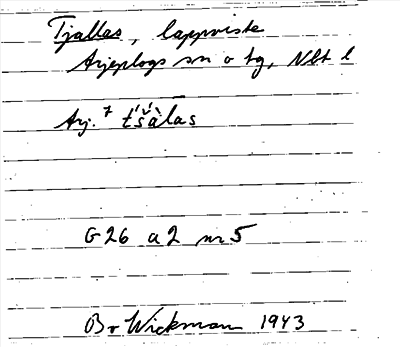 Tjallas, lappviste
Arjeplogs sn o tg, Nbt l
Arj. ⁊ t́š́àlas
G26 a2 nr 5
Bo Wickman 1943